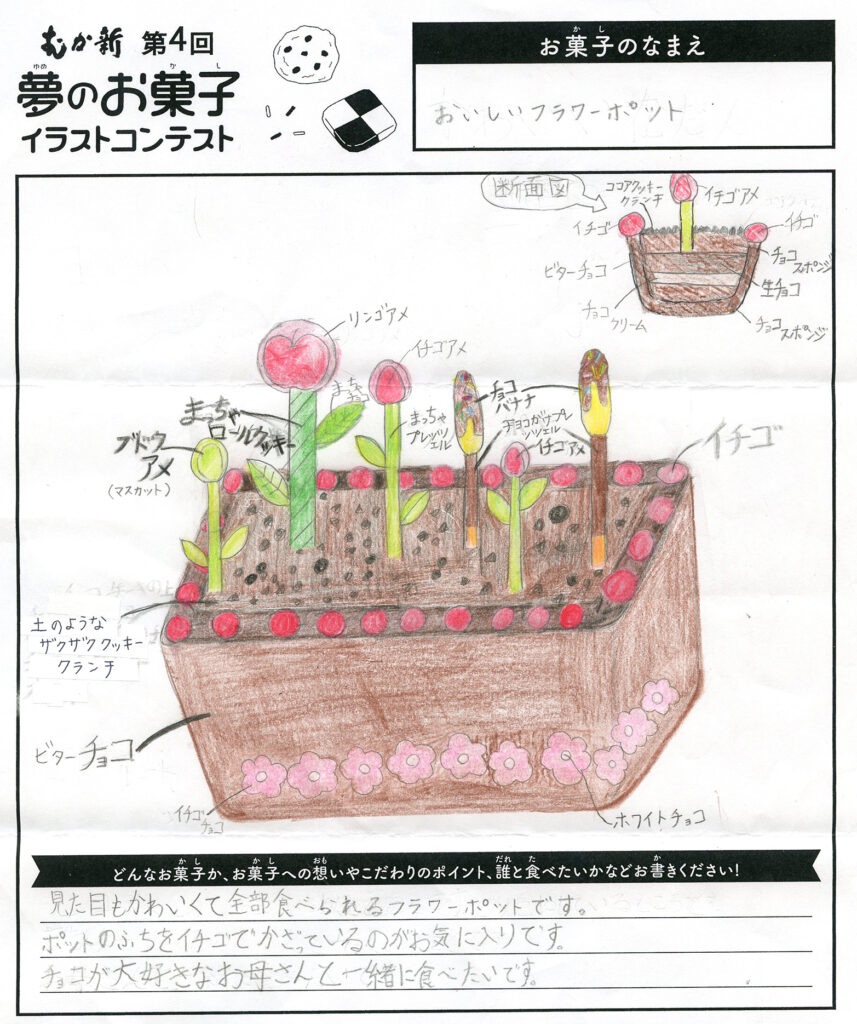 むか新 第4回
夢のお菓子
ゆめ か し
イラストコンテスト
お菓子のなまえ
か し
おいしいフラワーポット
断面図
ココアクッキー
クランチ
イチゴアメ
イチゴ
イチゴ
ビターチョコ
チョコ
スポンジ
生チョコ
チョコ
クリーム
チョコ
スポンジ
リンゴアメ
イチゴアメ
まっちゃ
チョコ
まっちゃ
ロールクッキー
まっちゃ
プレッツェル
チョコ
バナナ
チョコがけプレ
ッツェル
イチゴアメ
イチゴ
ブドウ
アメ
(マスカット)
土のような
ザクザククッキー
クランチ
ビターチョコ
イチゴ
チョコ
ホワイトチョコ
どんなお菓子か、お菓子への想いやこだわりのポイント、誰と食べたいかなどお書きください!
か し か し おも だれ た か
見た目もかわいくて全部食べられるフラワーポットです。
ポットのふちをイチゴでかざっているのがお気に入りです。
チョコが大好きなお母さんと一緒に食べたいです。